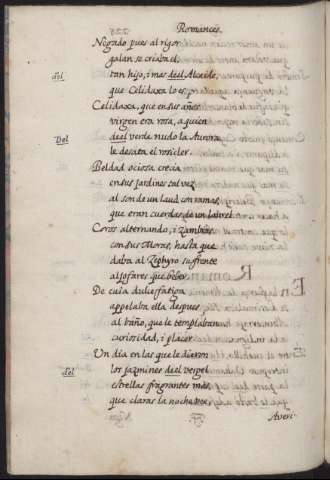 Romances.
Negado pues al rigor
galan se criaba el
tan hijo, i mas deel Alcaide,
del
que Celidaxa lo es.
Celidaxa, que en sus años
virgen era rosa, a quien
deel verde nudo la Aurora
Del
le desata el rosicler.
Beldad ociosa crecia
en sus jardines tal vez
al son de un laud con ramas,
que eran cuerdas de un laurel.
Coros alternando, i zambras
con sus Moras, hasta que
daba al Zephyro su frente
aljofares que beber.
De cuia dulce fatiga
apelaba ella despues
al baño, que le templaban
curiosidad, i placer.
Un dia en las que le dieron
los jazmines deel vergel
del
estrellas fragrantes mas,
que claras la noche vee,
Averi-